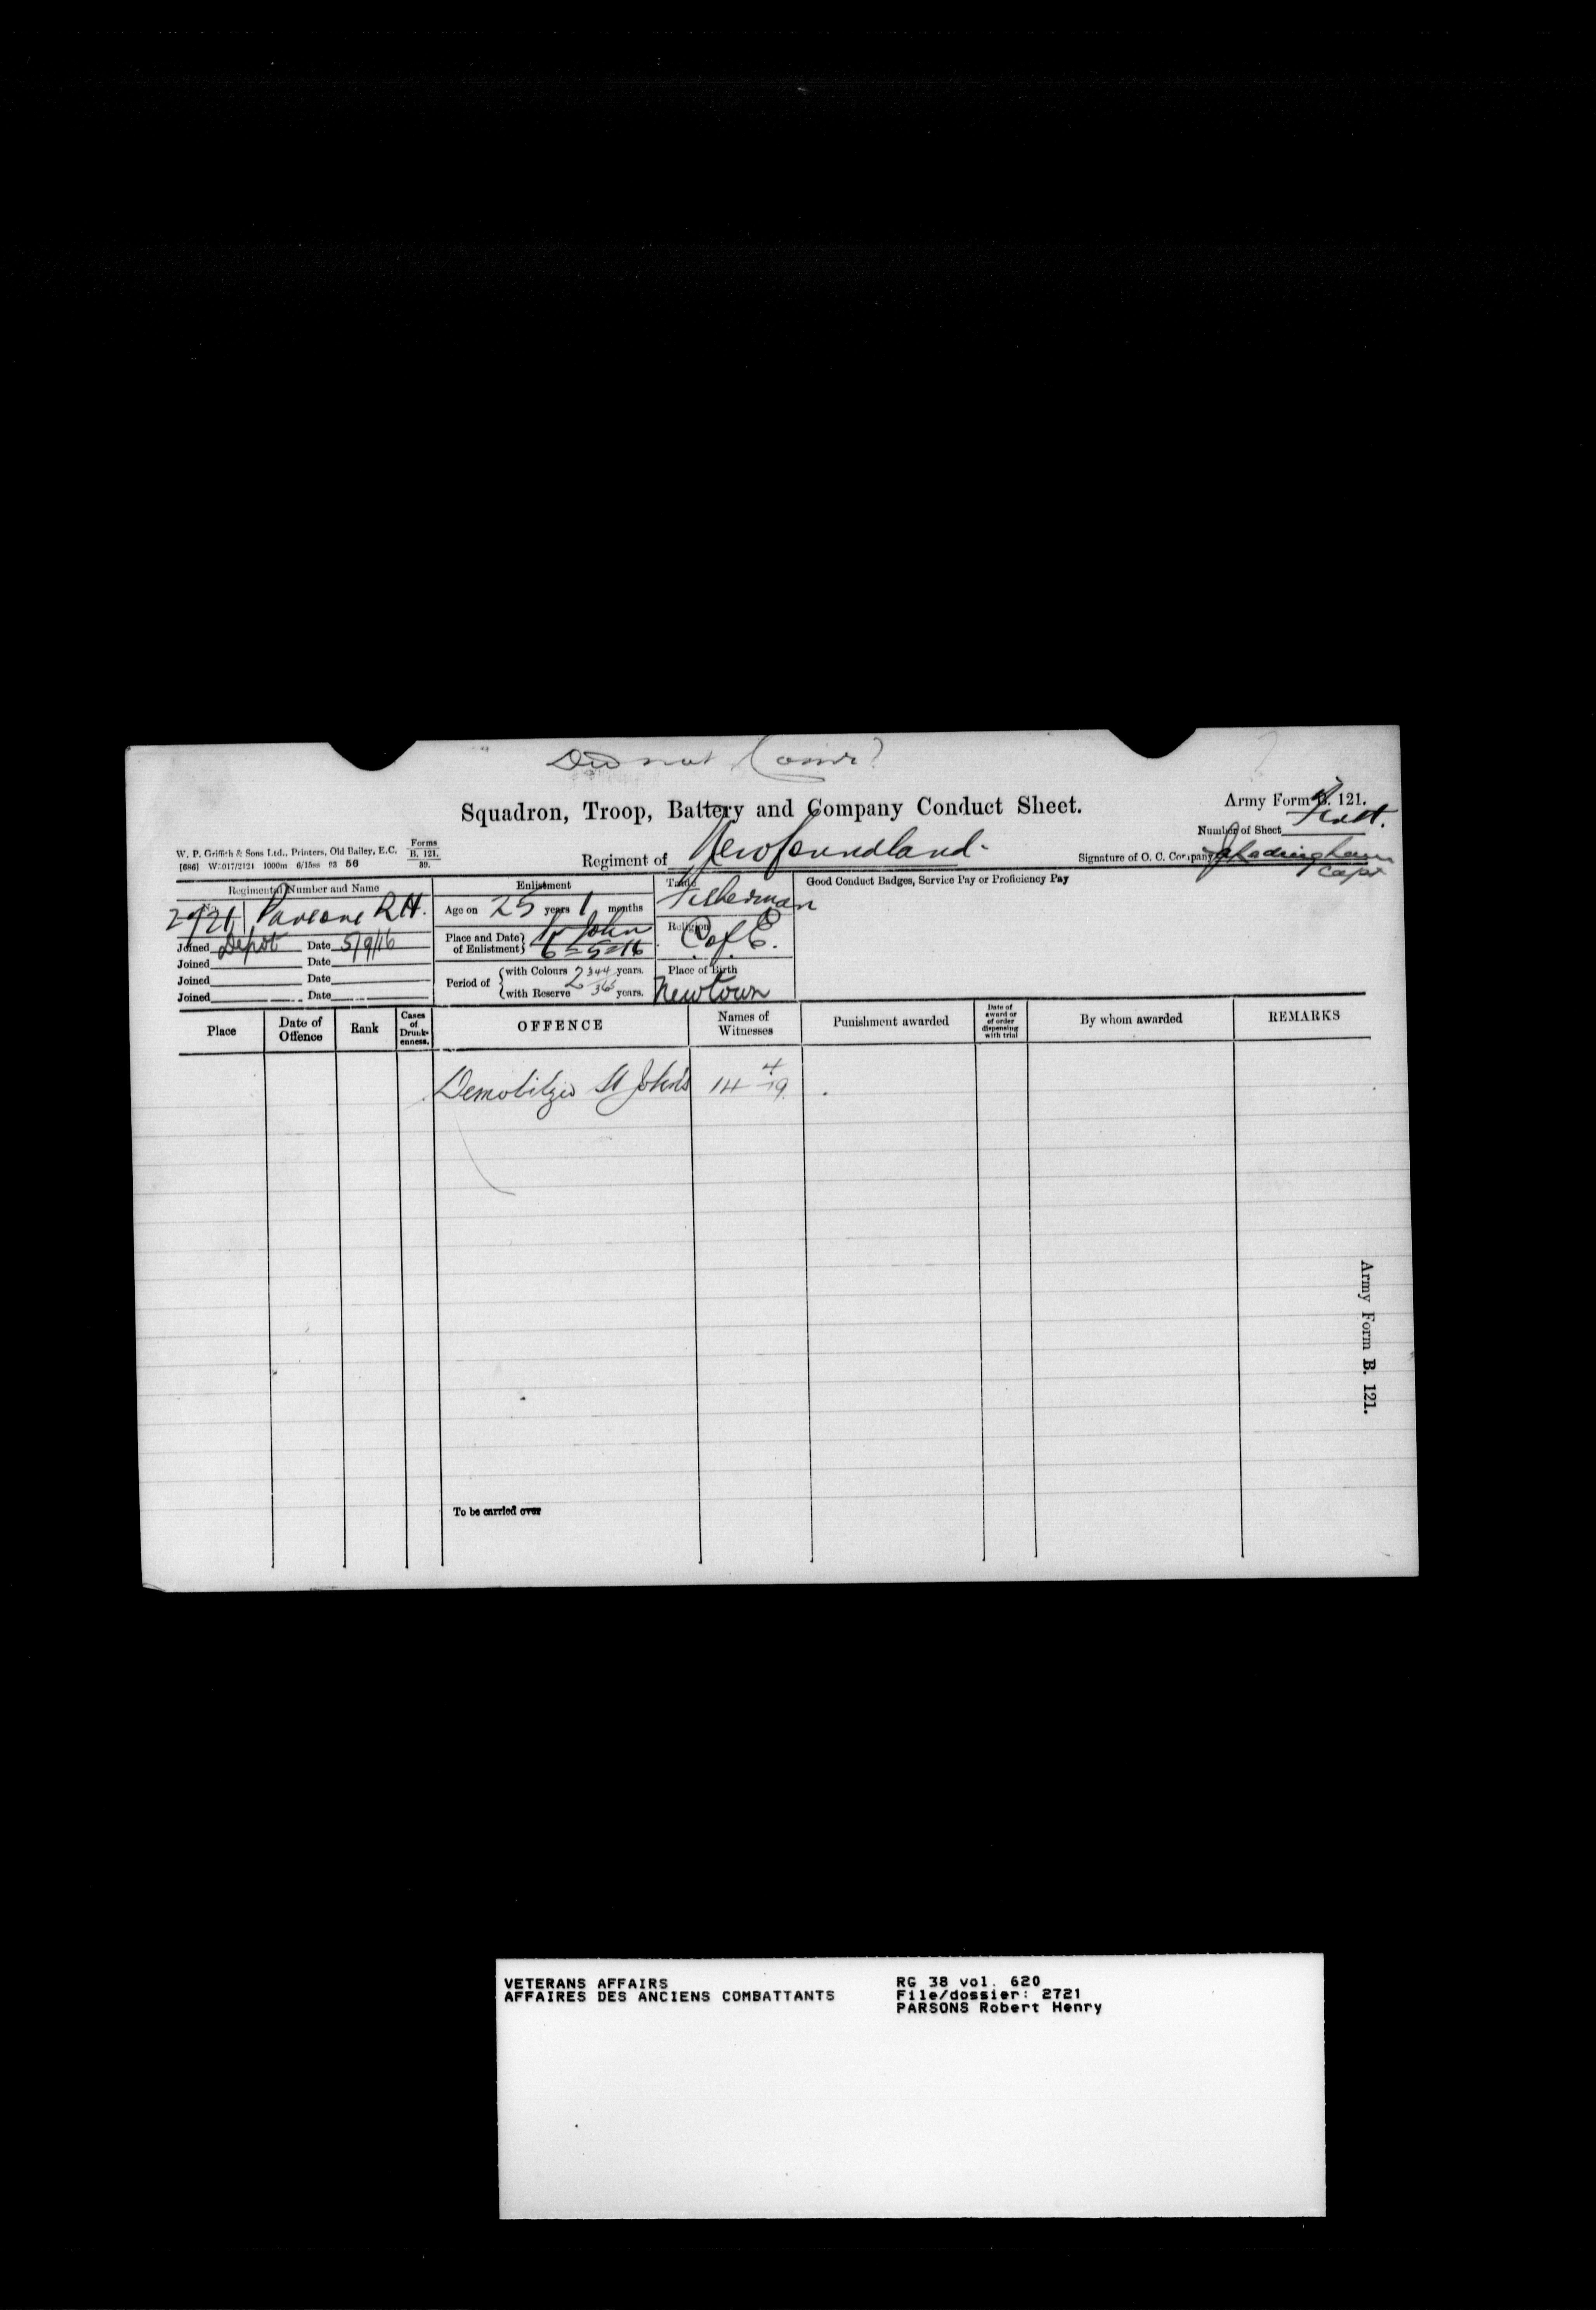 Did not
Squadron, Troop, Battery and Company Conduct Sheet.
Army Form B. 121.
Number of Sheet
W. P. Griffith & Sons Ltd., Printers, Old Bailey, E.C.
Forms
B. 121.
39.
Regiment of Newfoundland.
Signature of O. C. Company
Capt
Regimental Number and Name
No.
2721 Parsons R H.
Joined Depot Date 5/9/16
Joined Date
Joined Date
Joined Date
Enlistment
Age on 25 years 1 months
Place and Date of Enlistment St John 6-5-16
Period of with Colours 2 344/365 years.
with Reserve years.
Trade
Fisherman
Religion
C of E.
Place of Birth
Newtown
Good Conduct Badges, Service Pay or Proficiency Pay
Place
Date of Offence
Rank
Cases of Drunkenness.
OFFENCE
Names of Witnesses
Punishment awarded
Date of award or of order dispensing with trial
By whom awarded
REMARKS
Demobilized St John's 14 4/19.
To be carried over
Army Form B. 121.
VETERANS AFFAIRS
AFFAIRES DES ANCIENS COMBATTANTS
RG 38 vol. 620
File/dossier: 2721
PARSONS Robert Henry